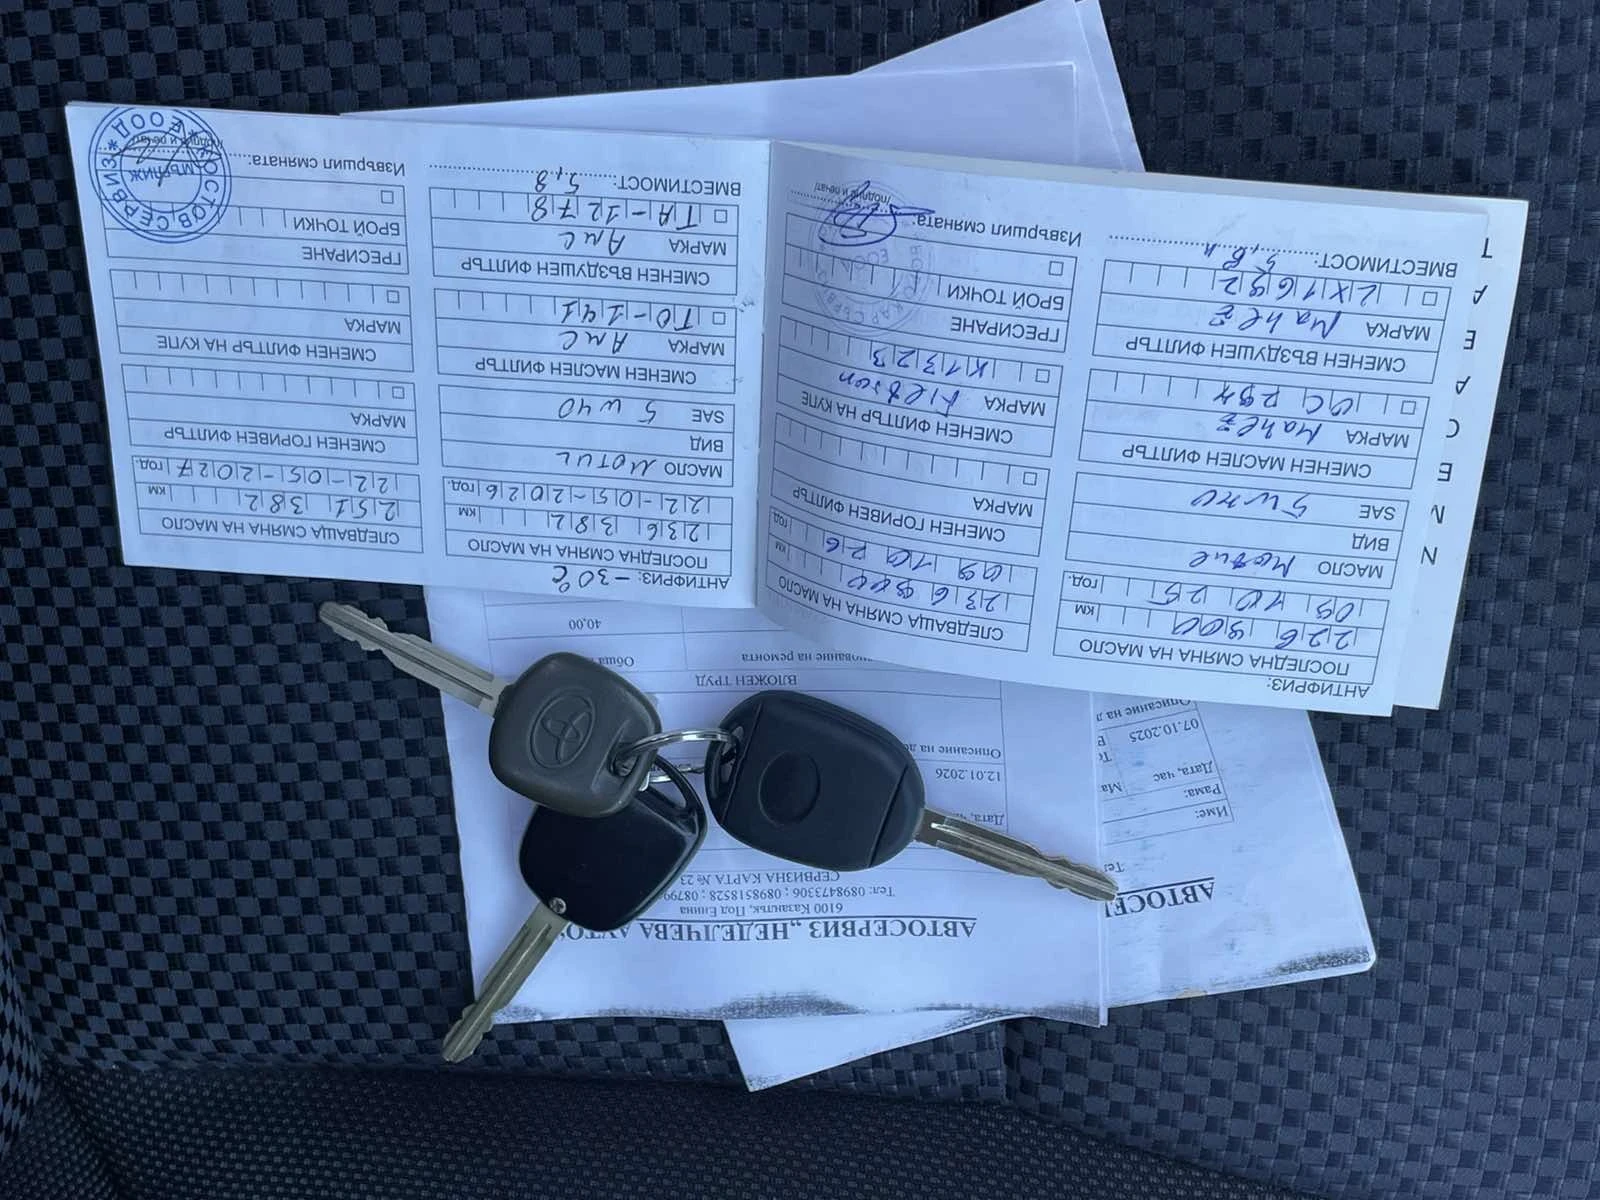 АНТИФРИЗ:
ПОСЛЕДНА СМЯНА НА МАСЛО
226 900 КМ
09 10 25 год.
МАСЛО Motul
ВИД
SAE 5w40
СМЕНЕН МАСЛЕН ФИЛТЪР
МАРКА Mahle
СМЕНЕН ВЪЗДУШЕН ФИЛТЪР
МАРКА Mahle
LX1692
ВМЕСТИМОСТ: 5,8л
СЛЕДВАЩА СМЯНА НА МАСЛО
236900 КМ
09 10 26 год.
СМЕНЕН ГОРИВЕН ФИЛТЪР
МАРКА
СМЕНЕН ФИЛТЪР НА КУПЕ
МАРКА Filtron
K1323
ГРЕСИРАНЕ
БРОЙ ТОЧКИ
Извършил смяната:
/подпис и печат/
АНТИФРИЗ: -30°C
ПОСЛЕДНА СМЯНА НА МАСЛО
236 382 КМ
22-05-2026 год.
МАСЛО MOTUL
ВИД
SAE 5w40
СМЕНЕН МАСЛЕН ФИЛТЪР
МАРКА AMC
TO-141
СМЕНЕН ВЪЗДУШЕН ФИЛТЪР
МАРКА AMC
TA-1278
ВМЕСТИМОСТ: 5,8
СЛЕДВАЩА СМЯНА НА МАСЛО
251 382 КМ
22-05-2027 год.
СМЕНЕН ГОРИВЕН ФИЛТЪР
МАРКА
СМЕНЕН ФИЛТЪР НА КУПЕ
МАРКА
ГРЕСИРАНЕ
БРОЙ ТОЧКИ
Извършил смяната:
/подпис и печат/
СЕРВИЗ * ЕООД *
МЪГЛИЖ
АВТОСЕРВИЗ „НЕДЕЛЧЕВА АУТО
6100 Казанлък, Под Енина
Тел: 0898473306 ; 0898518528 ; 08799
СЕРВИЗНА КАРТА № 23
Дата,
12.01.2026
Описание на
ВЛОЖЕН ТРУД
на ремонта
Обща
40,00
АВТОСЕ
Тел
Име:
Рама:
Дата, час
07.10.2025
Описание на